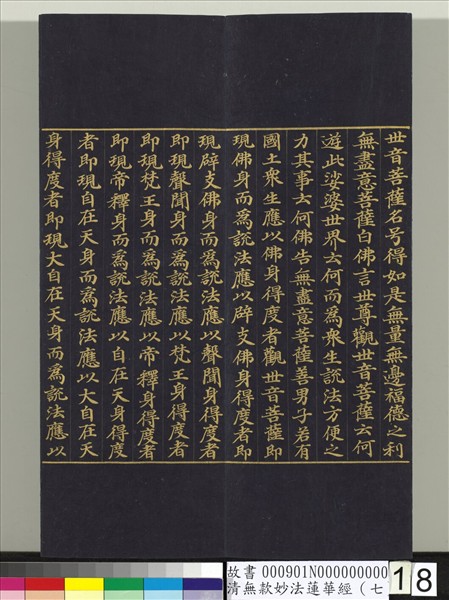 世音菩薩名号得如是無量無邊福德之利
無盡意菩薩白佛言世尊觀世音菩薩云何
遊此娑婆世界云何而為衆生説法方便之
力其事云何佛告無盡意菩薩善男子若有
國土衆生應以佛身得度者觀世音菩薩即
現佛身而為説法應以辟支佛身得度者即
現辟支佛身而為説法應以聲聞身得度者
即現聲聞身而為説法應以梵王身得度者
即現梵王身而為説法應以帝釋身得度者
即現帝釋身而為説法應以自在天身得度
者即現自在天身而為説法應以大自在天
身得度者即現大自在天身而為説法應以
故書 000901N000000000
清無款妙法蓮華經（七
18